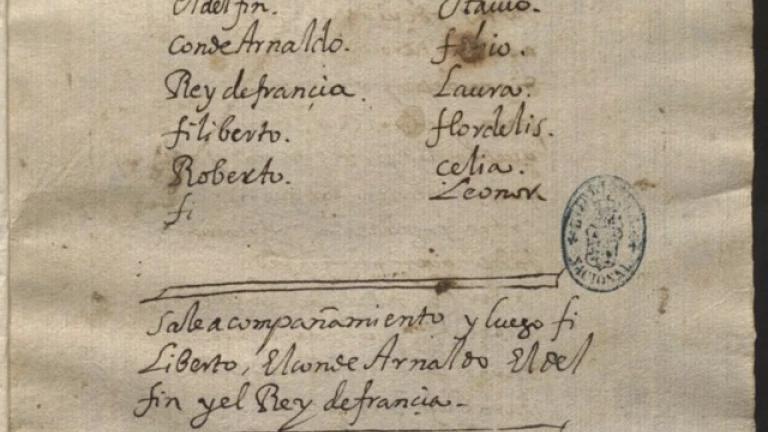 El delfin.
Conde Arnaldo.
Rey defrancia.
filiberto.
Roberto.
fi
Otavio.
fabio.
Laura.
flordelis.
celia.
Leonor
BIBLIOTECA NACIONAL
Sale acompañamiento y luego fi
Liberto, El conde Arnaldo El del
fin y el Rey defrancia.